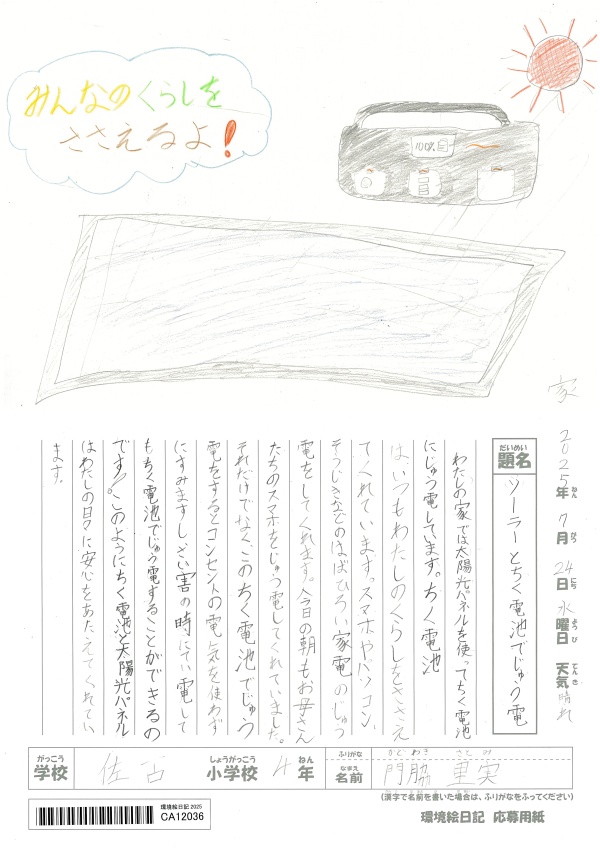 みんなのくらしを
ささえるよ!
100%
家
2025年 7月 24日 水曜日 天気 晴れ
ねん がつ にち ようび てんき
だいめい
題名 ソーラーとちく電池でじゅう電
わたしの家では太陽光パネルを使ってちく電池
にじゅう電しています。ちく電池
はいつもわたしのくらしをささえ
てくれています。スマホやパソコン、
そうじきなどのはばひろい家電のじゅう
電をしてくれます。今日の朝もお母さん
たちのスマホをじゅう電してくれていました。
それだけでなくこのちく電池でじゅう
電をするとコンセントの電気を使わず
にすみますしさい害の時にてい電して
もちく電池でじゅう電することができるの
です!。このようにちく電池と太陽光パネル
はわたしの日々に安心をあたえてくれてい
ます。
がっこう しょうがっこう ねん ふりがな かどわき さとみ
学校 佐古 小学校 4年 なまえ 名前 門脇 里実
(漢字で名前を書いた場合は、ふりがなをふってください)
環境絵日記 2025
CA12036
環境絵日記 応募用紙